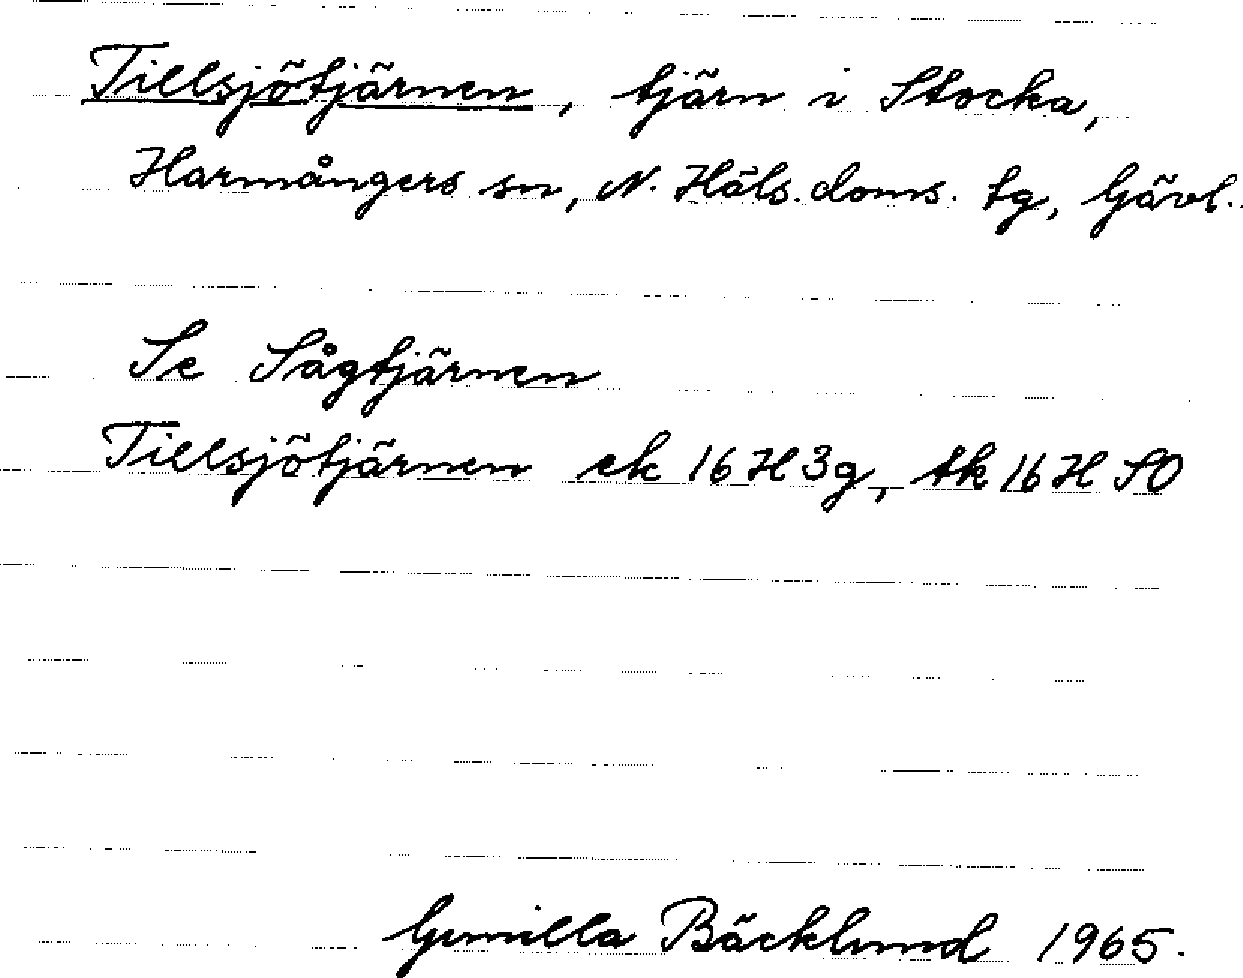 Tillsjötjärnen, tjärn i Stocka,
Harmångers sn, N. Häls. doms. tg, Gävl..
Se Sågtjärnen
Tillsjötjärnen ek 16 H 3g, tk 16 H SO
Gunilla Bäcklund 1965.